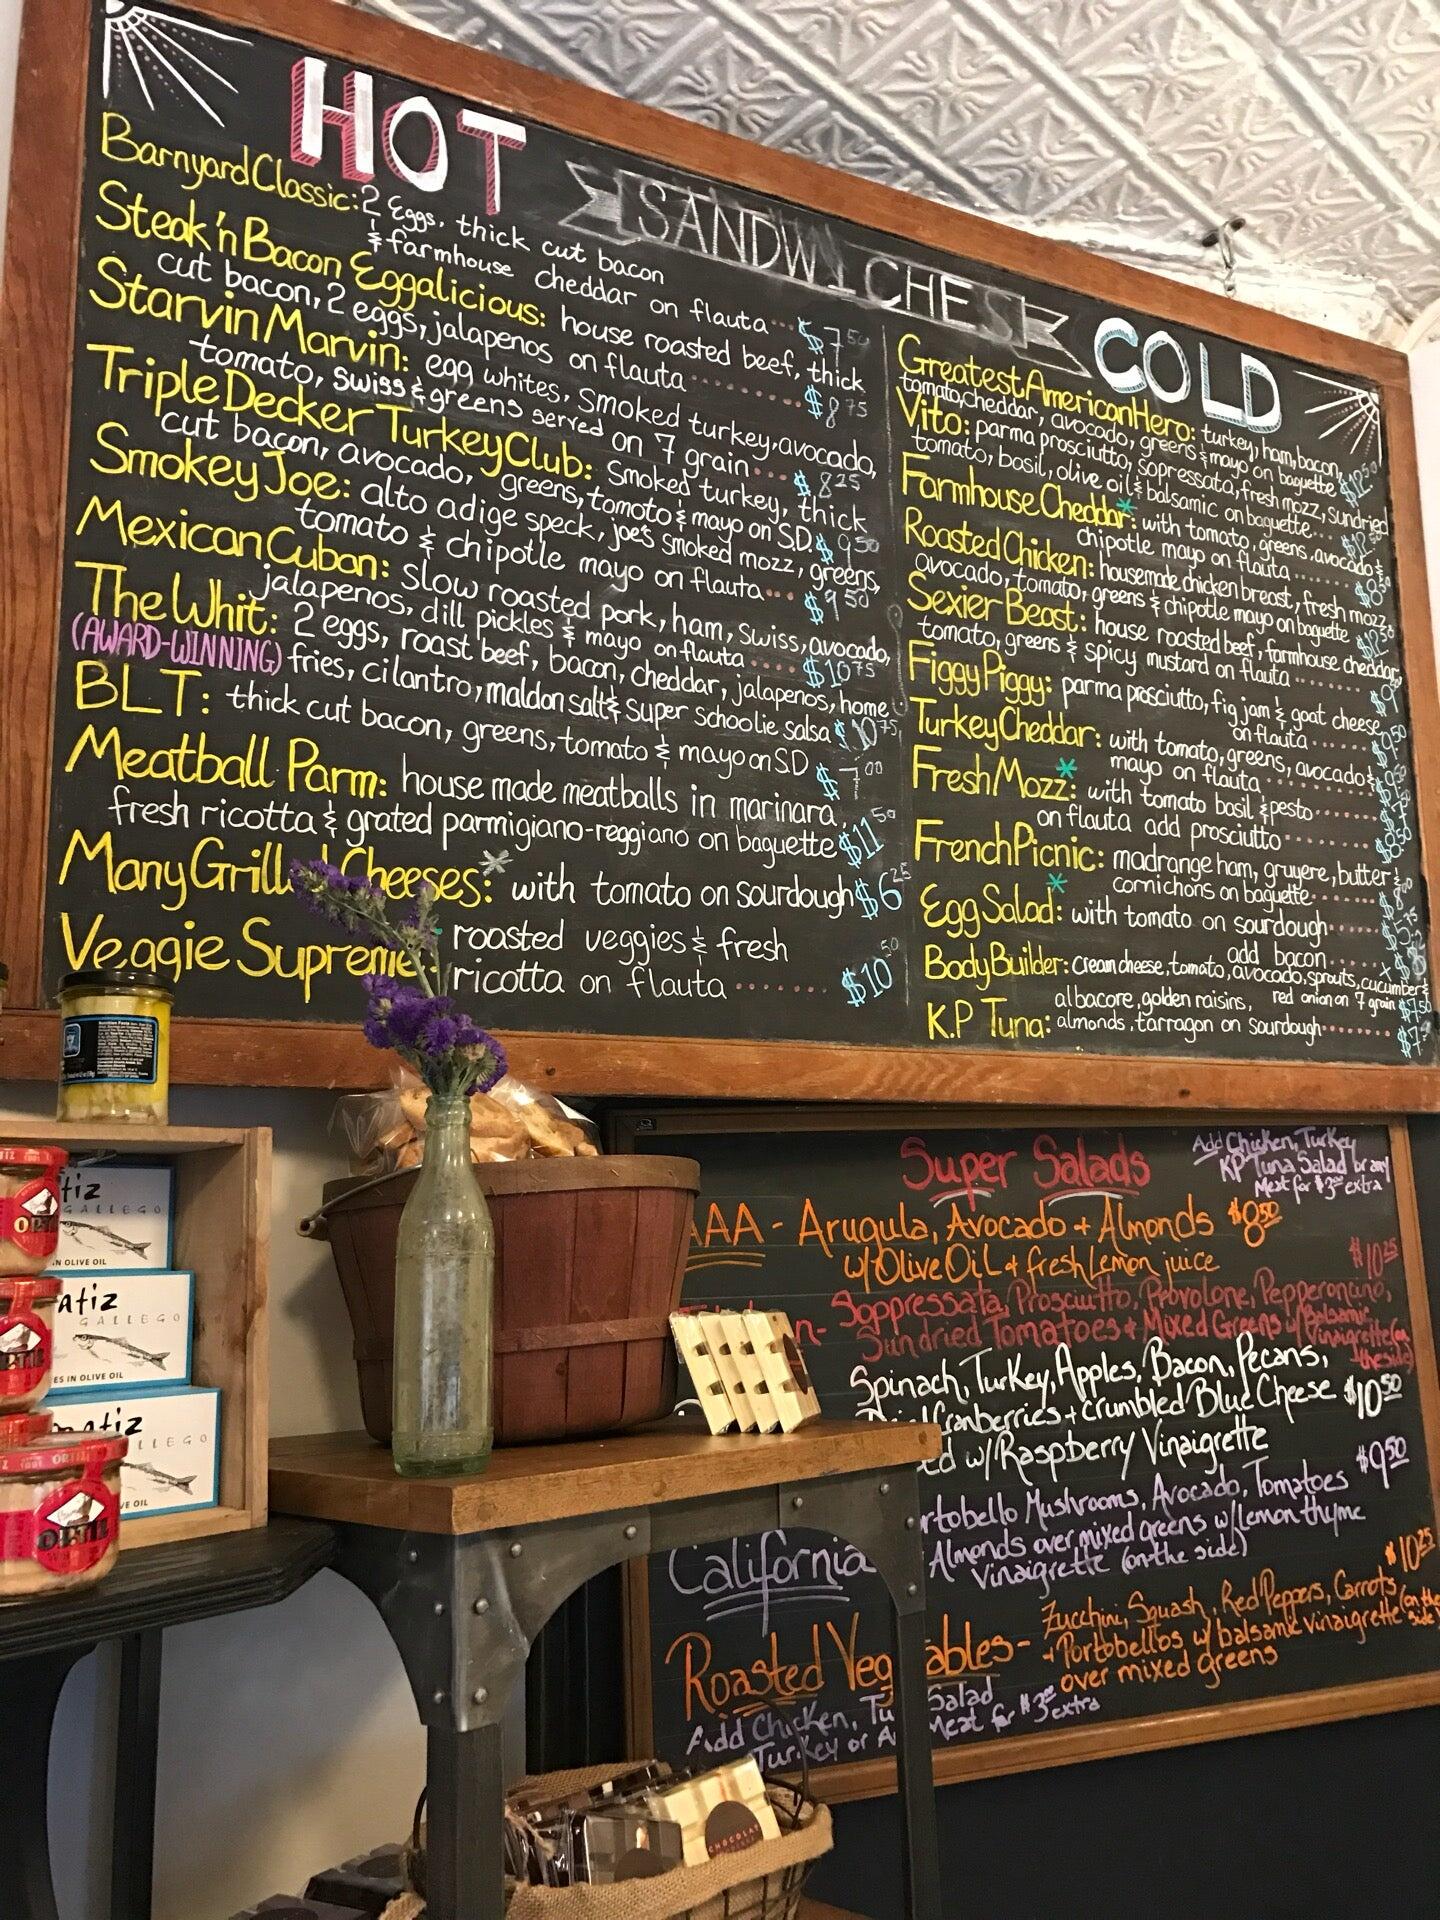 HOT
SANDWICHES
Barnyard Classic: 2 Eggs, thick cut bacon
& farmhouse cheddar on flauta... $7.50
Steak'n Bacon Eggalicious: house roasted beef, thick
cut bacon, 2 eggs, jalapenos on flauta....... $8.75
Starvin Marvin: egg whites, smoked turkey, avocado,
tomato, swiss & greens served on 7 grain... $8.25
Triple Decker Turkey Club: Smoked turkey, thick
cut bacon, avocado, greens, tomato & mayo on S.D. $9.50
Smokey Joe: alto adige speck, joe's smoked mozz, greens,
tomato & chipotle mayo on flauta... $9.50
Mexican Cuban: slow roasted pork, ham, swiss, avocado,
jalapenos, dill pickles & mayo on flauta .... $10.75
The Whit: 2 eggs, roast beef, bacon, cheddar, jalapenos, home
(AWARD-WINNING) fries, cilantro, maldon salt & super schoolie salsa $10.75
BLT: thick cut bacon, greens, tomato & mayo on SD $7.00
Meatball Parm: house made meatballs in marinara,
fresh ricotta & grated parmigiano-reggiano on baguette $11.50
Many Grilled Cheeses:* with tomato on sourdough $6.25
Veggie Supreme: roasted veggies & fresh
ricotta on flauta ....... $10.50
COLD
Greatest American Hero: turkey, ham, bacon,
tomato, cheddar, avocado, greens & mayo on baguette $12.50
Vito: parma prosciutto, sopressata, fresh mozz, sundried
tomato, basil, olive oil & balsamic on baguette...
Farmhouse Cheddar*: with tomato, greens, avocado &
chipotle mayo on flauta ........
Roasted Chicken: housemade chicken breast, fresh mozz,
avocado, tomato, greens & chipotle mayo on baguette
Sexier Beast: house roasted beef, farmhouse cheddar,
tomato, greens & spicy mustard on flauta ........ $9
Figgy Piggy: parma prosciutto, fig jam & goat cheese
on flauta ......
Turkey Cheddar: with tomato, greens, avocado &
mayo on flauta
Fresh Mozz*: with tomato basil & pesto
on flauta add prosciutto
French Picnic: madrange ham, gruyere, butter &
cornichons on baguette
Egg Salad*: with tomato on sourdough
add bacon
Body Builder: cream cheese, tomato, avocado, sprouts, cucumber &
red onion on 7 grain $7.50
K.P Tuna: albacore, golden raisins,
almonds, tarragon on sourdough........ $7
Super Salads
Add Chicken, Turkey
KP Tuna Salad or any
Meat for $3.00 extra
AAA - Arugula, Avocado + Almonds $8.50
w/ Olive Oil + fresh lemon juice
$10.25
Soppressata, Prosciutto, Provolone, Pepperoncino,
Sundried Tomatoes + Mixed Greens w/ Balsamic
Vinaigrette (on
the side)
Spinach, Turkey, Apples, Bacon, Pecans,
Dried Cranberries + Crumbled Blue Cheese $10.50
w/ Raspberry Vinaigrette
Portobello Mushrooms, Avocado, Tomatoes $9.50
California Almonds over mixed greens w/ lemon thyme
Vinaigrette (on the side)
$10.25
Roasted Vegetables - Zucchini, Squash, Red Peppers, Carrots
+ Portobellos w/ balsamic vinaigrette (on the side)
over mixed greens
Add Chicken, Tu Salad
Turkey or A Meat for $3.00 extra
ORTIZ
atiz
GALLEGO
IN OLIVE OIL
atiz
GALLEGO
ES IN OLIVE OIL
ORTIZ
matiz
GALLEGO
VE OIL
ORTIZ
CHOCOLAT